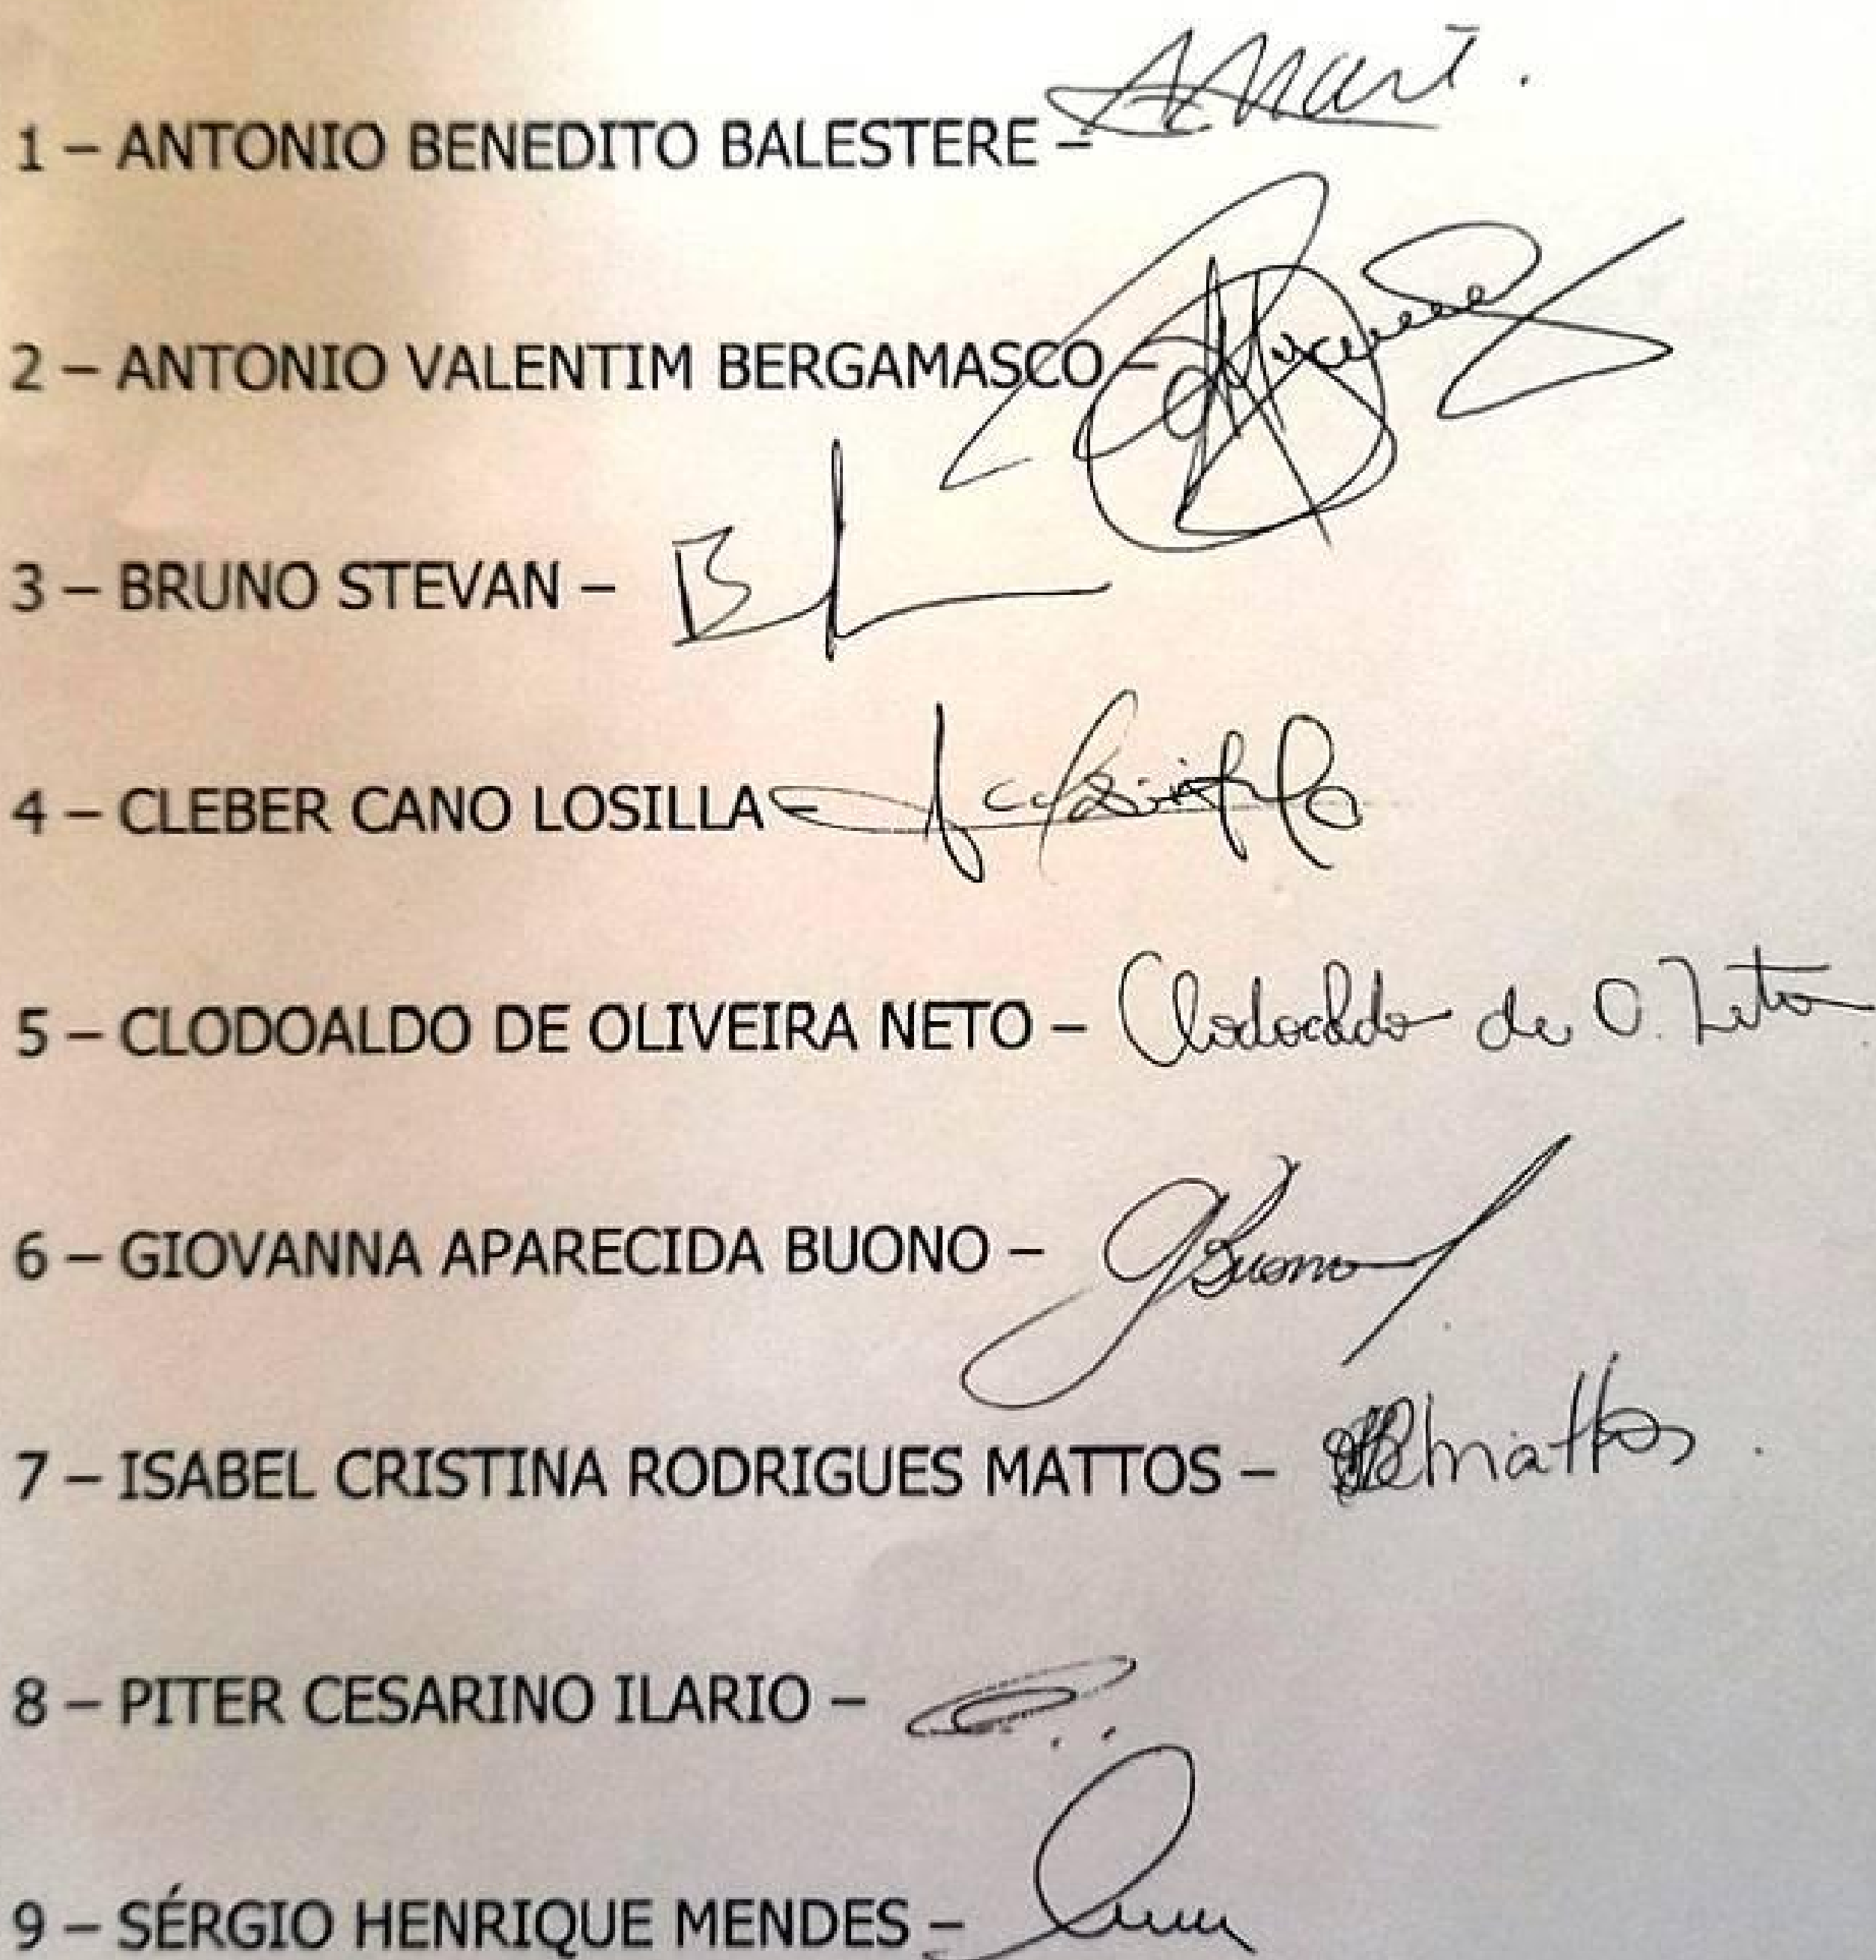 1 – ANTONIO BENEDITO BALESTERE –
2 – ANTONIO VALENTIM BERGAMASCO –
3 – BRUNO STEVAN –
4 – CLEBER CANO LOSILLA –
5 – CLODOALDO DE OLIVEIRA NETO – Clodoaldo de O. Neto
6 – GIOVANNA APARECIDA BUONO – GBuono
7 – ISABEL CRISTINA RODRIGUES MATTOS – Mattos
8 – PITER CESARINO ILARIO –
9 – SÉRGIO HENRIQUE MENDES –